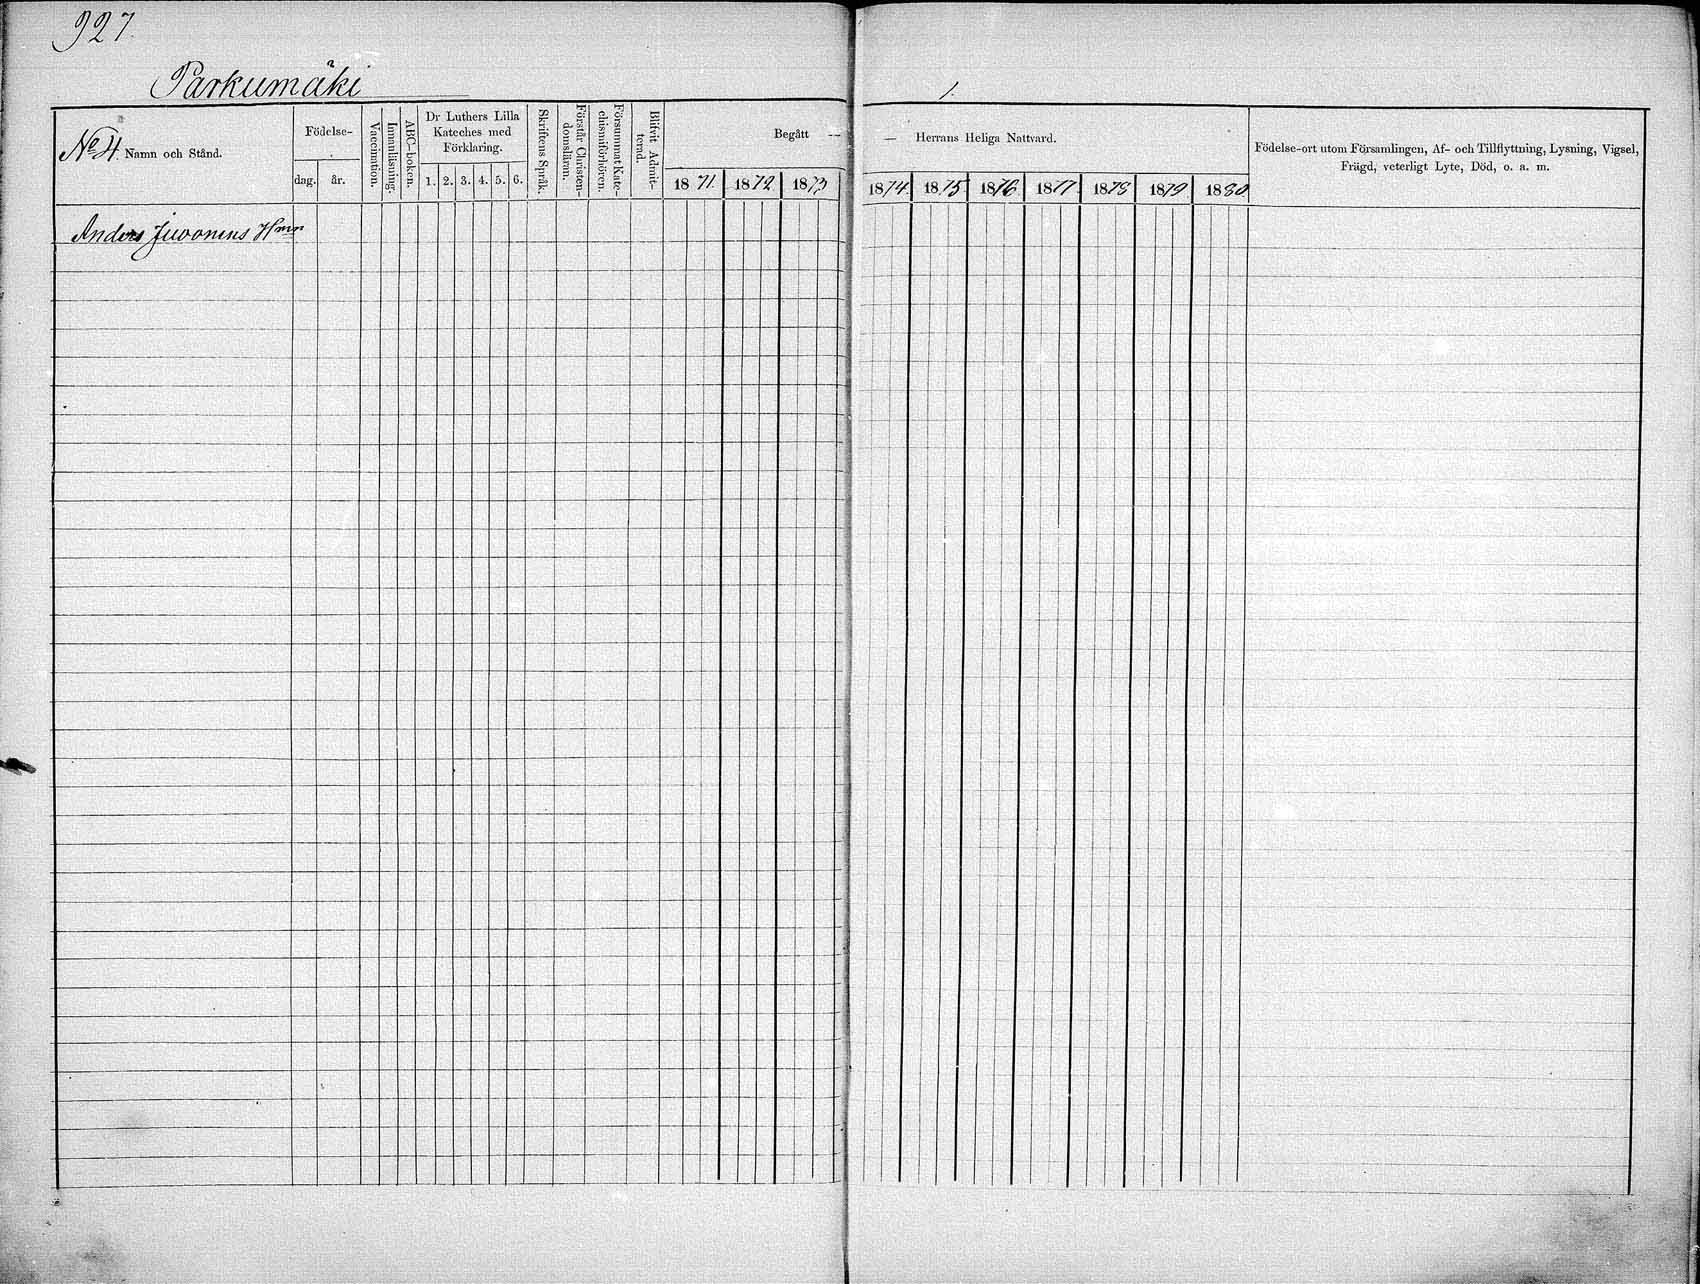 927.
Parkumäki
1.
No 4. Namn och Stånd.
Födelse-
dag. år.
Vaccination.
Innanläsning.
ABC-boken.
Dr Luthers Lilla
Kateches med
Förklaring.
1. 2. 3. 4. 5. 6.
Skriftens Språk.
Förstår Christen-
domsläran.
Försummat Kate-
chismiförhören.
Blifvit Admit-
terad.
Begått —
1871. 1872. 1873
— Herrans Heliga Nattvard.
1874. 1875 1876 1877 1878 1879 1880
Födelse-ort utom Församlingen, Af- och Tillflyttning, Lysning, Vigsel,
Frägd, veterligt Lyte, Död, o. a. m.
Anders Juvonens Hmn